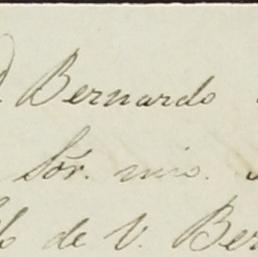 Bernardo
Sór. mio.
de V. Ber